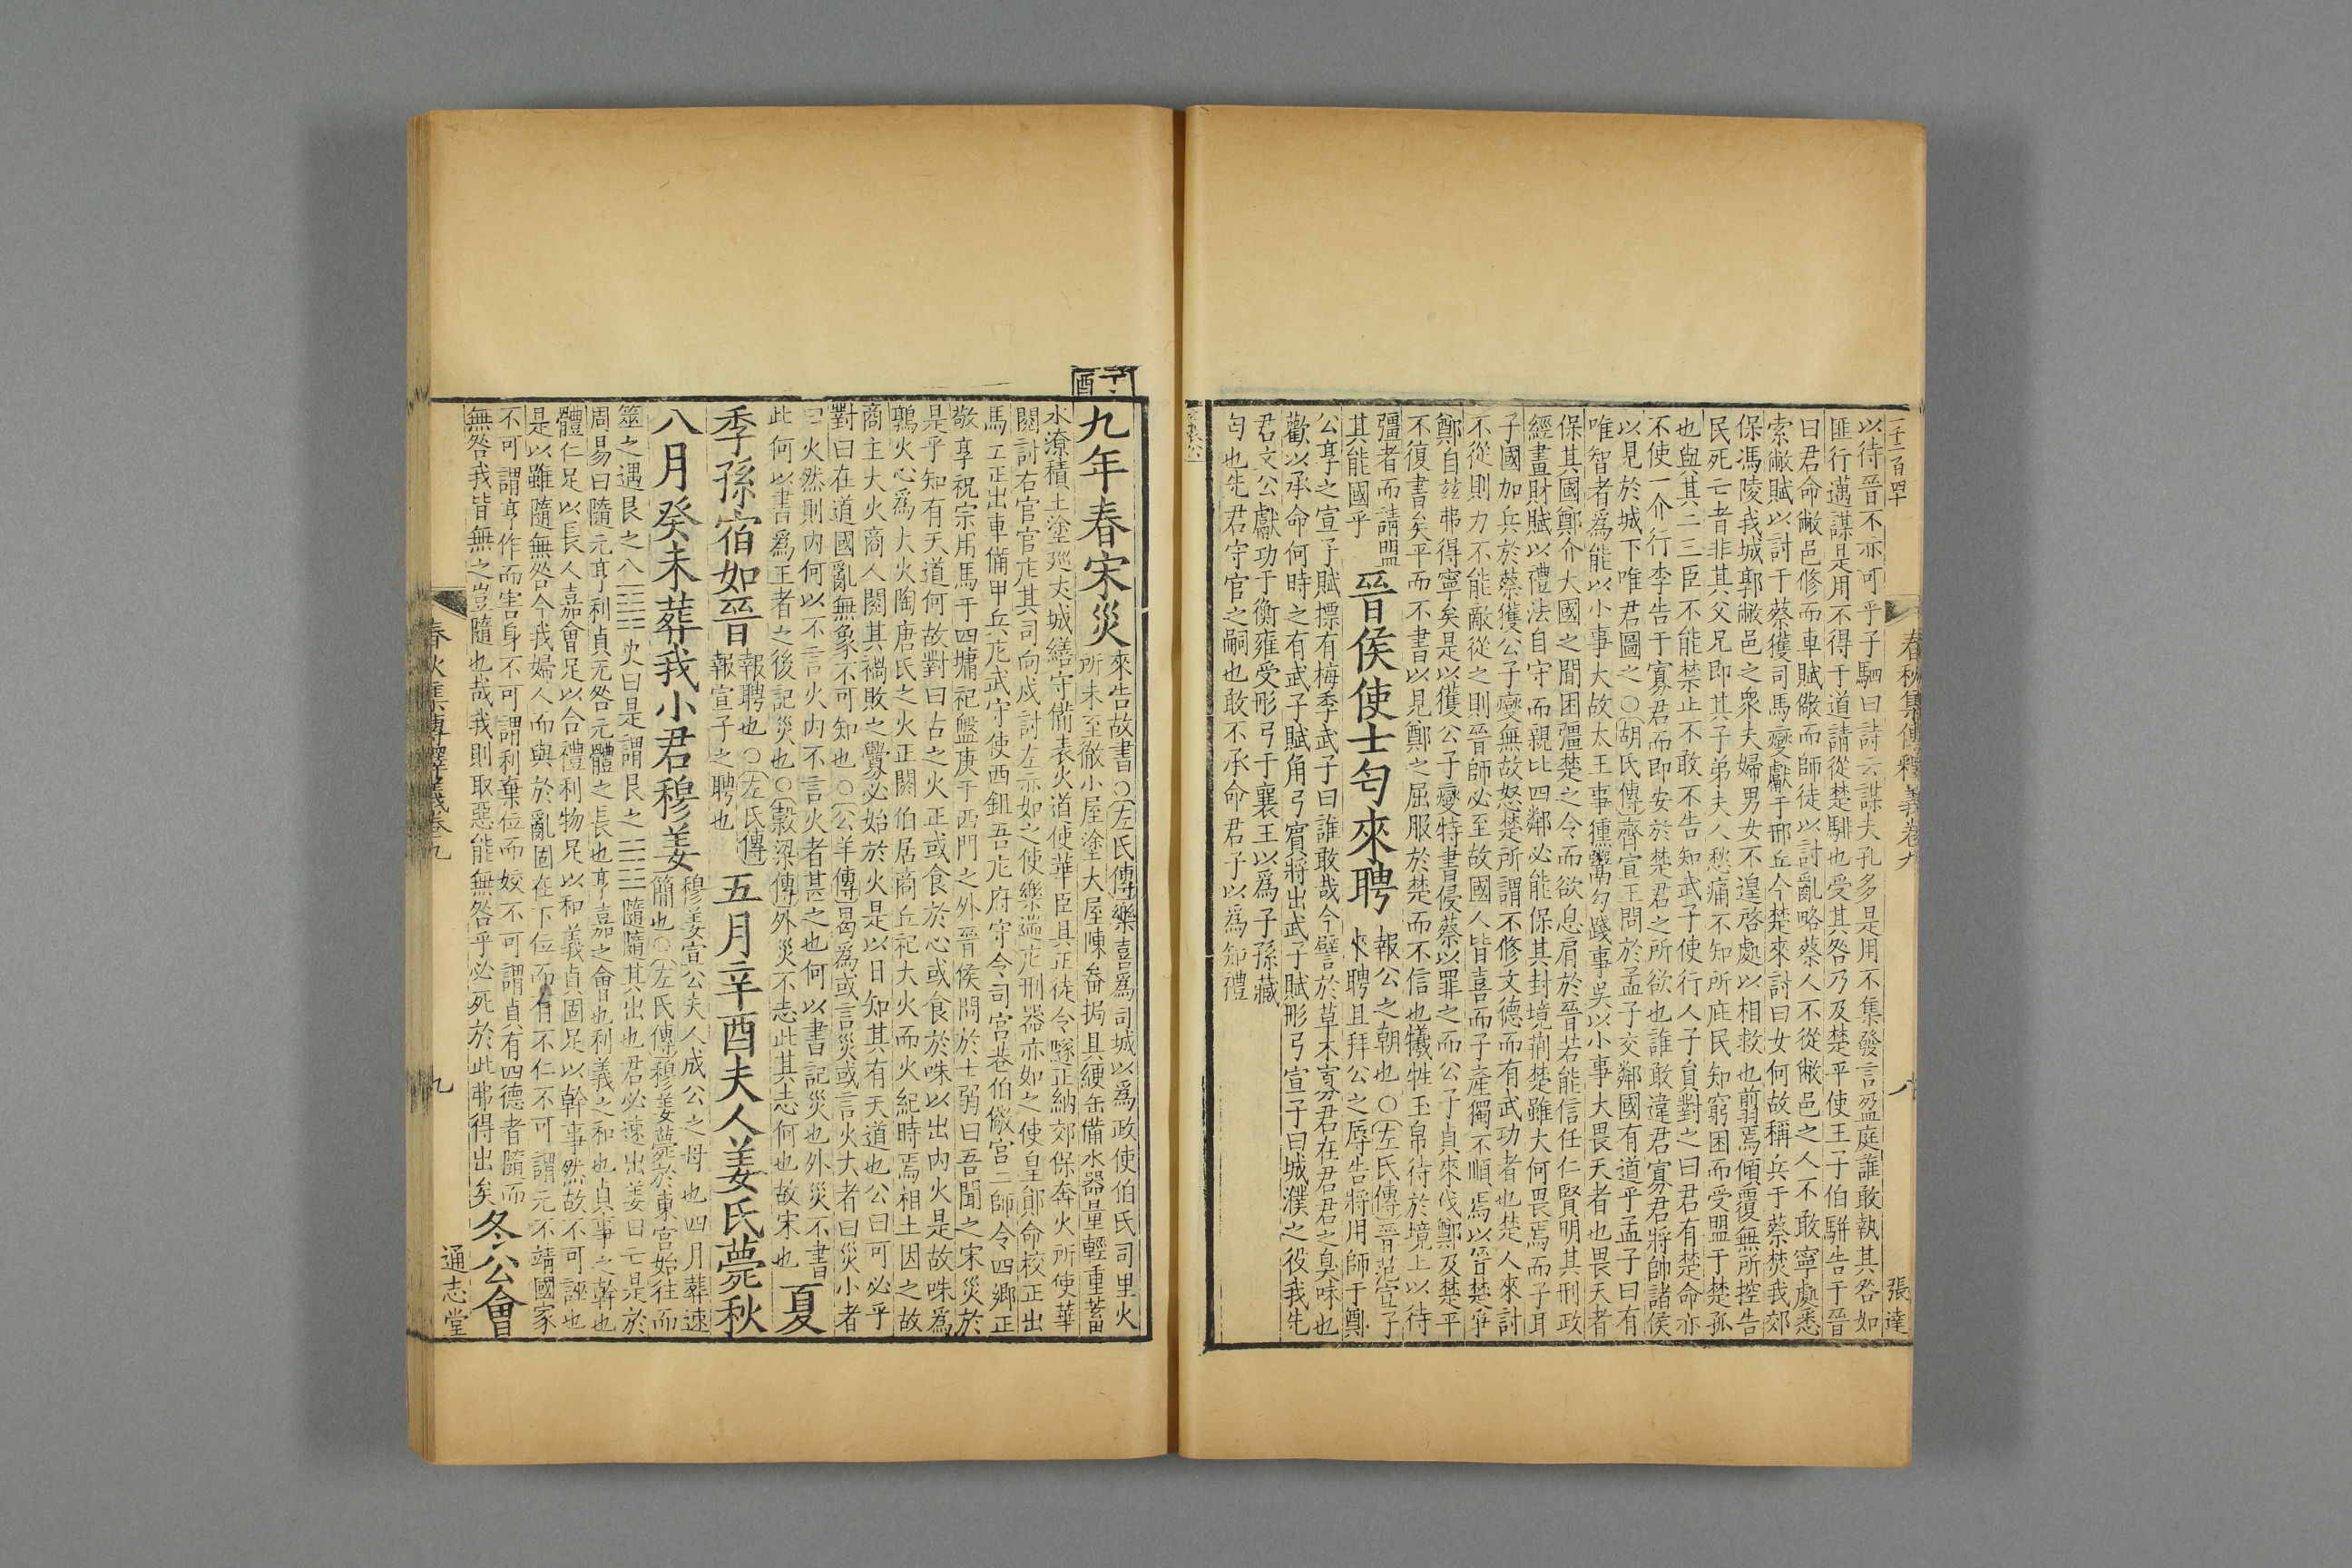 春秋集傳釋義卷九
八
張達
以待晉不亦可乎子駟曰詩云謀夫孔多是用不集發言盈庭誰敢執其咎如
匪行邁謀是用不得于道請從楚騑也受其咎乃及楚平使王子伯駢告于晉
曰君命敝邑修而車賦儆而師徒以討亂略蔡人不從敝邑之人不敢寧處悉
索敝賦以討于蔡獲司馬燮獻于邢丘今楚來討曰女何故稱兵于蔡焚我郊
保馮陵我城郭敝邑之衆夫婦男女不遑啓處以相救也翦焉傾覆無所控告
民死亡者非其父兄即其子弟夫人愁痛不知所庇民知窮困而受盟于楚孤
也與其二三臣不能禁止不敢不告知武子使行人子員對之曰君有楚命亦
不使一介行李告于寡君而即安於楚君之所欲也誰敢違君寡君將帥諸侯
以見於城下唯君圖之○胡氏傳齊宣王問於孟子交鄰國有道乎孟子曰有
唯智者爲能以小事大故太王事獯鬻勾踐事吳以小事大畏天者也畏天者
保其國鄭介大國之間困彊楚之令而欲息肩於晉若能信任仁賢明其刑政
經畫財賦以禮法自守而親比四鄰必能保其封境荊楚雖大何畏焉而子耳
子國加兵於蔡獲公子燮無故怒楚所謂不修文德而有武功者也楚人來討
不從則力不能敵從之則晉師必至故國人皆喜而子產獨不順焉以晉楚爭
鄭自兹弗得寧矣是以獲公子燮特書侵蔡以罪之而公子貞來伐鄭及楚平
不復書矣平而不書以見鄭之屈服於楚而不信也犧牲玉帛待於境上以待
彊者而請盟
其能國乎
晉侯使士匄來聘
報公之朝也○左氏傳晉范宣子
來聘且拜公之辱告將用師于鄭
公享之宣子賦摽有梅季武子曰誰敢哉今譬於草木寡君在君君之臭味也
歡以承命何時之有武子賦角弓賓將出武子賦彤弓宣子曰城濮之役我先
君文公獻功于衡雍受彤弓于襄王以爲子孫藏
匄也先君守官之嗣也敢不承命君子以爲知禮
酉
九年春宋災
來告故書○左氏傳樂喜爲司城以爲政使伯氏司里火
所未至徹小屋塗大屋陳畚挶具綆缶備水器量輕重蓄
水潦積土塗巡丈城繕守備表火道使華臣具正徒令隧正納郊保奔火所使華
閱討右官官庀其司向戌討左亦如之使樂遄庀刑器亦如之使皇鄖命校正出
馬工正出車備甲兵庀武守使西鉏吾庀府守令司宮巷伯儆宮二師令四鄉正
敬享祝宗用馬于四墉祀盤庚于西門之外晉侯問於士弱曰吾聞之宋災於
是乎知有天道何故對曰古之火正或食於心或食於咮以出內火是故咮爲
鶉火心爲大火陶唐氏之火正閼伯居商丘祀大火而火紀時焉相土因之故
商主大火商人閱其禍敗之釁必始於火是以日知其有天道也公曰可必乎
對曰在道國亂無象不可知也○公羊傳曷爲或言災或言火大者曰災小者
曰火然則內何以不言火內不言火者甚之也何以書記災也外災不書
此何以書爲王者之後記災也○穀梁傳外災不志此其志何也故宋也
夏
季孫宿如晉
報聘也○左氏傳
報宣子之聘也
五月辛酉夫人姜氏薨秋
八月癸未葬我小君穆姜
穆姜宣公夫人成公之母也四月葬速
簡也○左氏傳穆姜薨於東宮始往而
筮之遇艮之八☶史曰是謂艮之隨隨其出也君必速出姜曰亡是於
周易曰隨元亨利貞无咎元體之長也亨嘉之會也利義之和也貞事之幹也
體仁足以長人嘉會足以合禮利物足以和義貞固足以幹事然故不可誣也
是以雖隨無咎今我婦人而與於亂固在下位而有不仁不可謂元不靖國家
不可謂亨作而害身不可謂利棄位而姣不可謂貞有四德者隨而
無咎我皆無之豈隨也哉我則取惡能無咎乎必死於此弗得出矣
冬公會
春秋集傳釋義卷九
九
通志堂